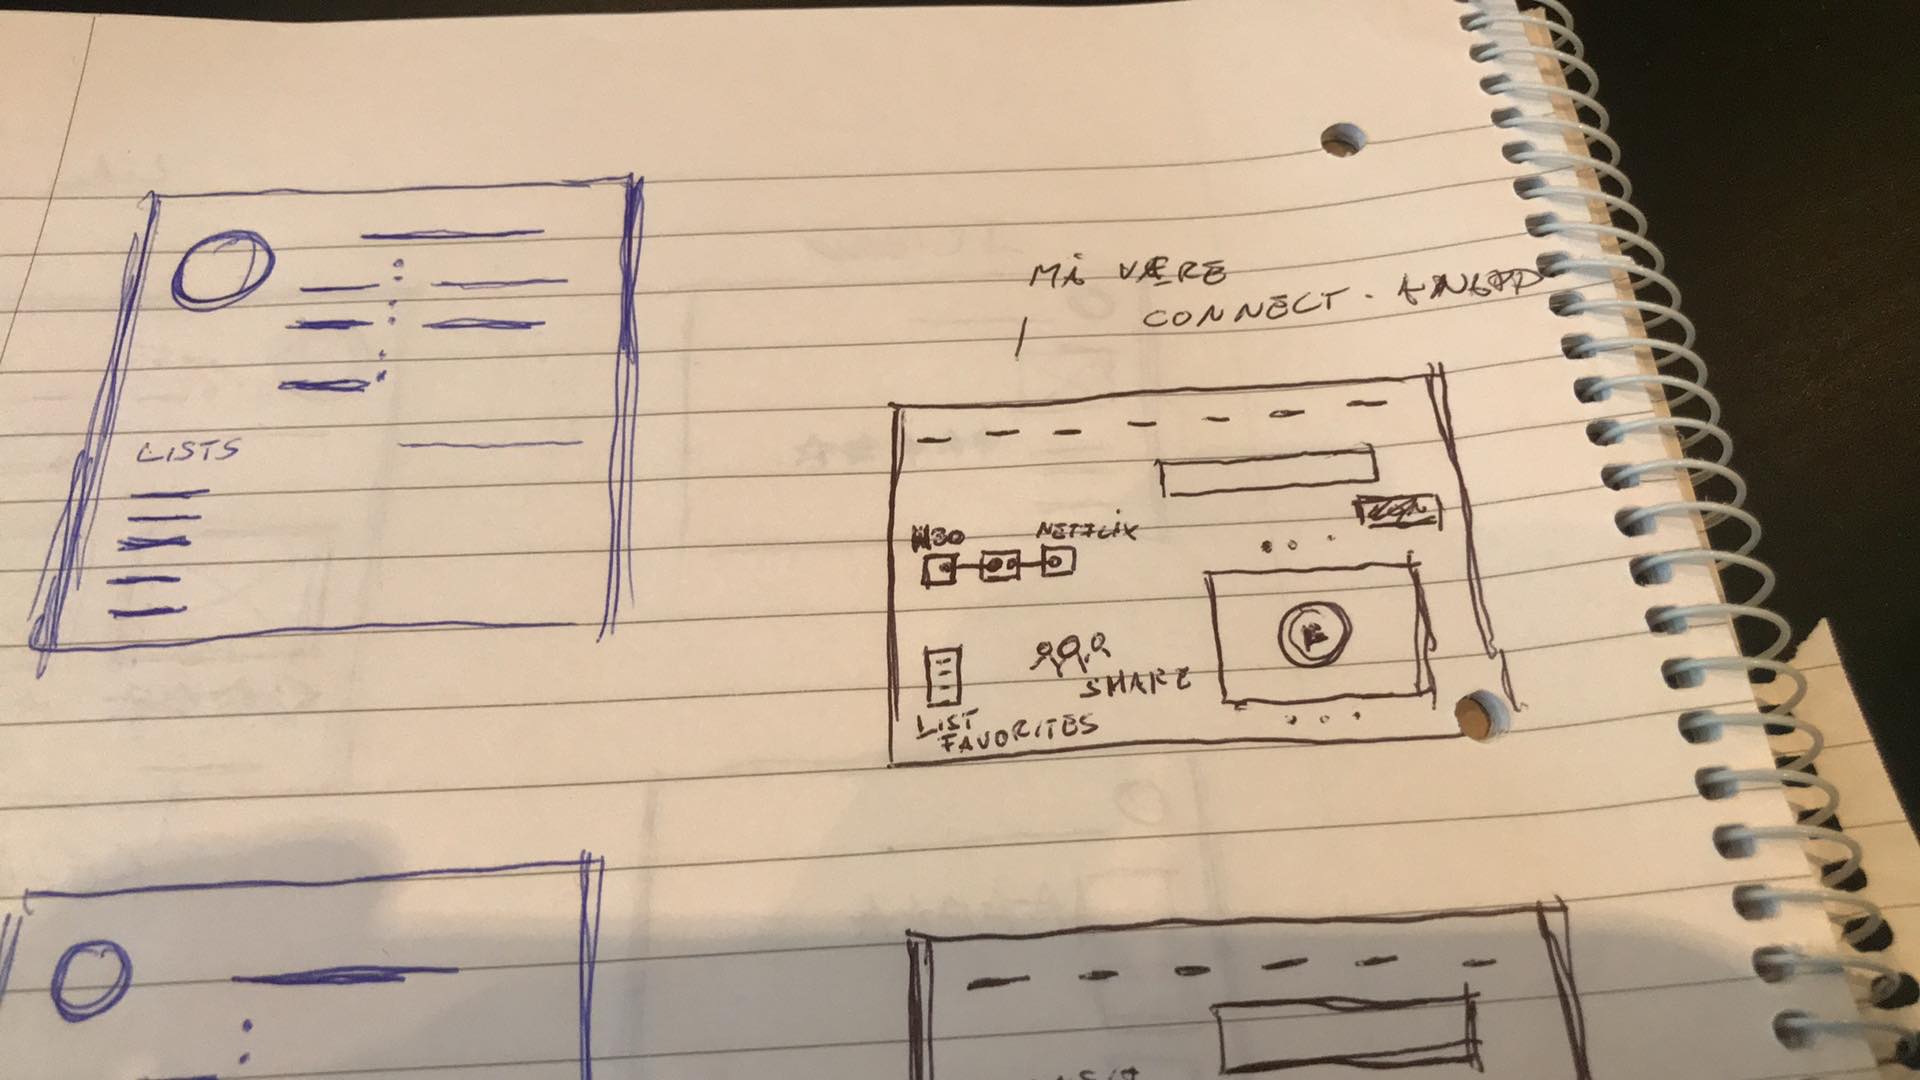 LISTS
MÅ VÆRE
CONNECT.
HBO
NETFLIX
SHARE
LIST
FAVORITES